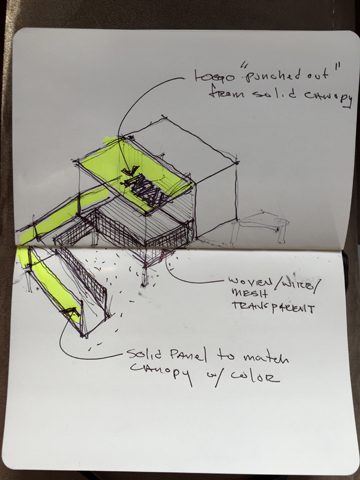 LOGO "punched out"
from solid canopy
WOVEN/WIRE/
MESH
TRANSPARENT
SOLID PANEL to match
CANOPY w/ COLOR